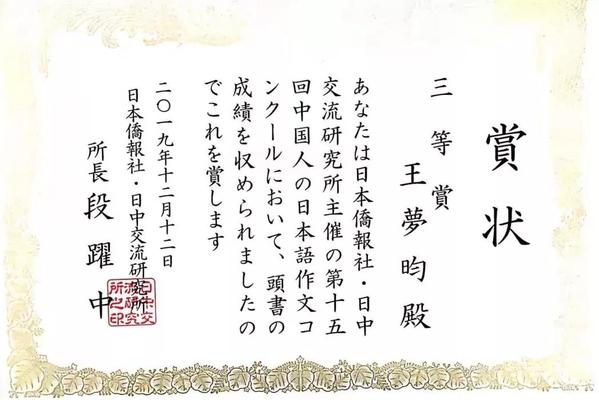 賞状
三等賞
王夢昀殿
あなたは日本僑報社・日中
交流研究所主催の第十五
回中国人の日本語作文コ
ンクールにおいて、頭書の
成績を収められましたの
でこれを賞します
二〇一九年十二月十二日
日本僑報社・日中交流研究所
所長 段躍中
日中交
流研究
所之印